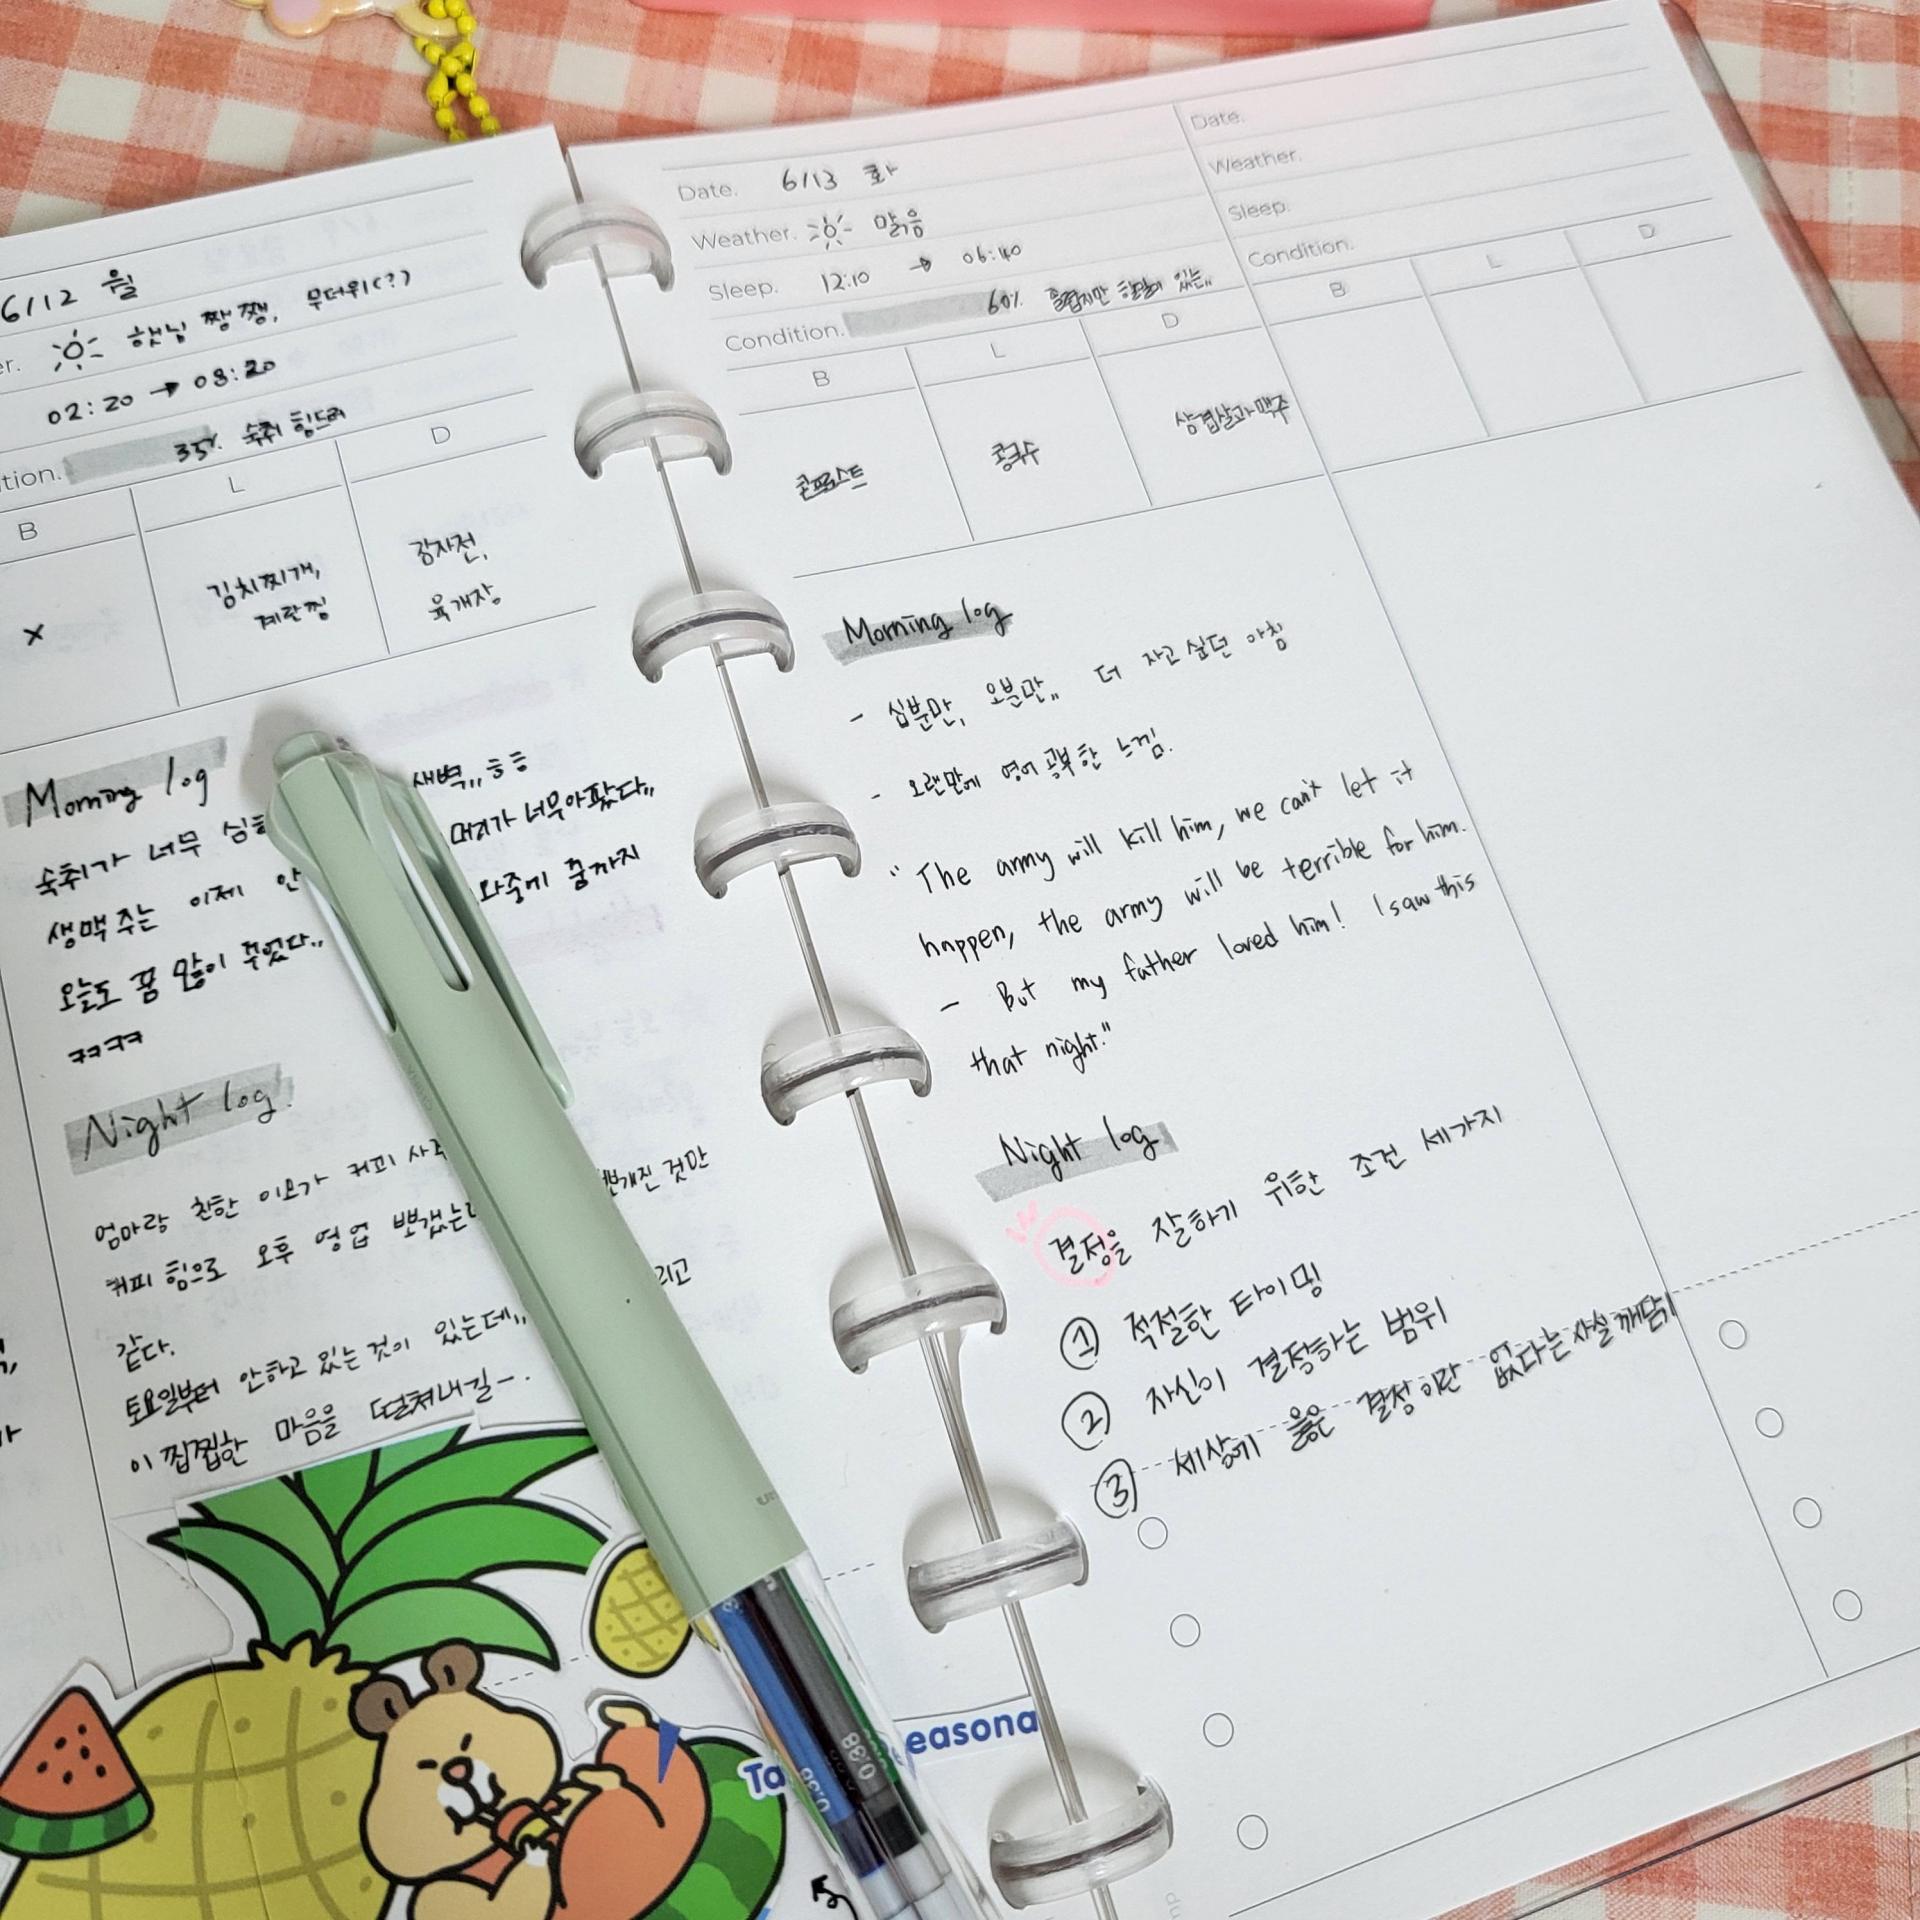 6/12 월
er. 햇님 쨍쨍, 무더위(?)
02:20 → 08:20
ition. 35% 숙취 힘드러
B L D
X 김치찌개, 감자전,
계란찜 육개장
Morning log
새벽,, ㅎㅎ
숙취가 너무 심 머리가 너무 아팠다,,
생맥주는 이제 안 와중에 꿈까지
오늘도 꿈 많이 꾸었다,,
ㅋㅋㅋㅋ
Night log.
엄마랑 친한 이모가 커피 사
커피 힘으로 오후 영업 뽀갰는 뽀개진 것만
같다. 리고
토요일부터 안하고 있는 것이 있는데,,
이 찝찝한 마음을 떨쳐내길-.
Date. 6/13 화
Weather. 맑음
Sleep. 12:10 → 06:40
Condition. 60% 졸렵지만 할일이 있는,,
B L D
콘푸로스트 콩국수 삼겹살과 맥주
Morning log
- 십분만, 오분만,, 더 자고 싶던 아침
- 오랜만에 영어 공부한 느낌.
"The army will kill him, we can't let it
happen, the army will be terrible for him.
- But my father loved him! I saw this
that night."
Night log
결정을 잘하기 위한 조건 세가지
① 적절한 타이밍
② 자신이 결정하는 범위
③ 세상에 옳은 결정이란 없다는 사실 깨닫기
Date.
Weather.
Sleep.
Condition.
B L D
0.38
0.38
Ta easona